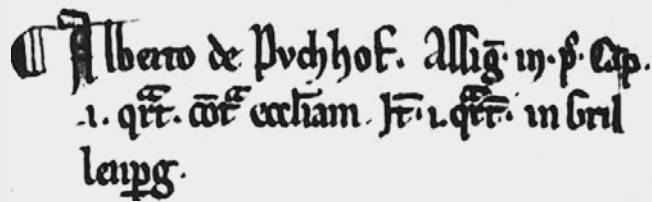 ¶ Alberto de Pvchhof. Assig̅. in. p̊. Cap.
.i. qrͣt. cōtͣ eccl̅iam. It̅. i. qrͣt̅. in Gril
lenp̲g.